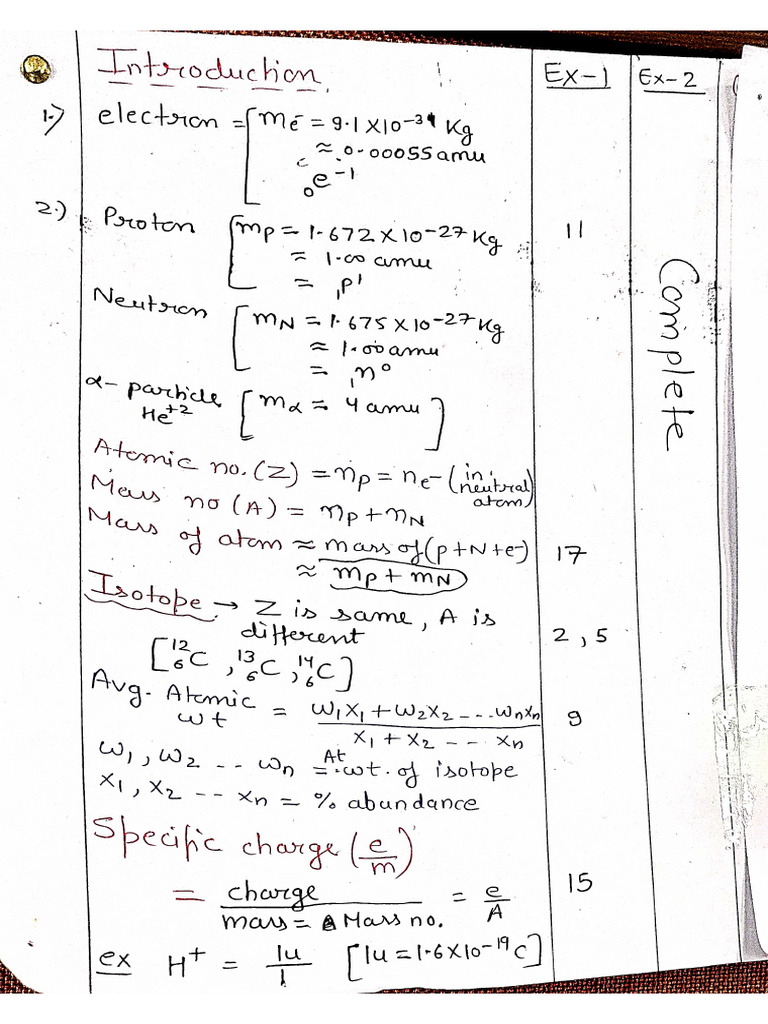 Introduction Ex-1 Ex-2
1.) electron = [mē = 9.1 X10⁻³¹ Kg
≈ 0.00055 amu
₀e⁻¹
2.) Proton [mp = 1.672 X 10⁻²⁷ Kg 11
= 1.00 amu
= ₁P¹
Neutron [mN = 1.675 X 10⁻²⁷ Kg
≈ 1.00 amu
= ₁n⁰
α- particle [mα = 4 amu]
He⁺²
Complete
Atomic no. (Z) = np = ne- (in neutral atom)
Mass no (A) = np + nN
Mass of atom ≈ mass of (p+N+e-) 17
≈ mp + mN
Isotope → Z is same, A is
different 2, 5
[¹²₆C, ¹³₆C, ¹⁴₆C]
Avg. Atomic wt = w₁x₁ + w₂x₂ ---- wnxn / x₁ + x₂ -- -- xn 9
w₁, w₂ -- wn = At. wt. of isotope
x₁, x₂ -- xn = % abundance
Specific charge (e/m)
= charge / mass = Mass no. = e/A 15
ex H⁺ = 1u/1 [1u = 1.6X10⁻¹⁹C]